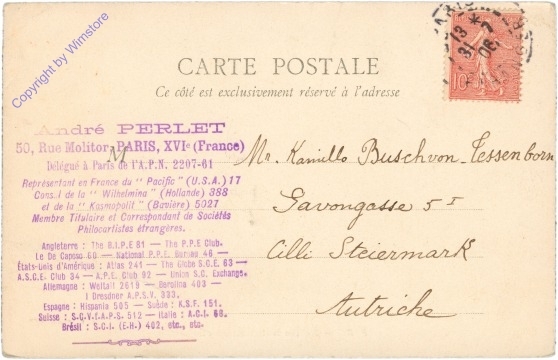 Copyright by Wimstore
13 *
31 7
06
10
CARTE POSTALE
Ce côté est exclusivement réservé à l'adresse
André PERLET
50, Rue Molitor, PARIS, XVIe (France)
M
Délégué à Paris de l'A.P.N. 2207-61
Représentant en France du "Pacific" (U.S.A.) 17
Cons.l de la "Wilhelmina" (Hollande) 388
et de la "Kosmopolit" (Bavière) 5027
Membre Titulaire et Correspondant de Sociétés
Philocartistes étrangères.
Angleterre : The B.I.P.E 81 — The P.P.E Club.
Le De Caposo 60 — National P.P.E. Bureau 46 —
États-unis d'Amérique : Atlas 241 — The Globe S.C.E. 63 —
A.S.C.E. Club 34 — A.P.E. Club 92 — Union S.C. Exchange.
Allemagne : Weltall 2619 — Berolina 403 —
I Dresdner A.P.S.V. 333.
Espagne : Hispania 505 — Suède : K.S.F. 151.
Suisse : S.C.V.T.A.P.S. 512 — Italie : A.C.I. 68.
Brésil : S.C.I. (E.H.) 402, etc., etc.
Mr. Kamillo Buschvon Tessenborn
Savongasse 5 I
Cilli Steiermark
Autriche